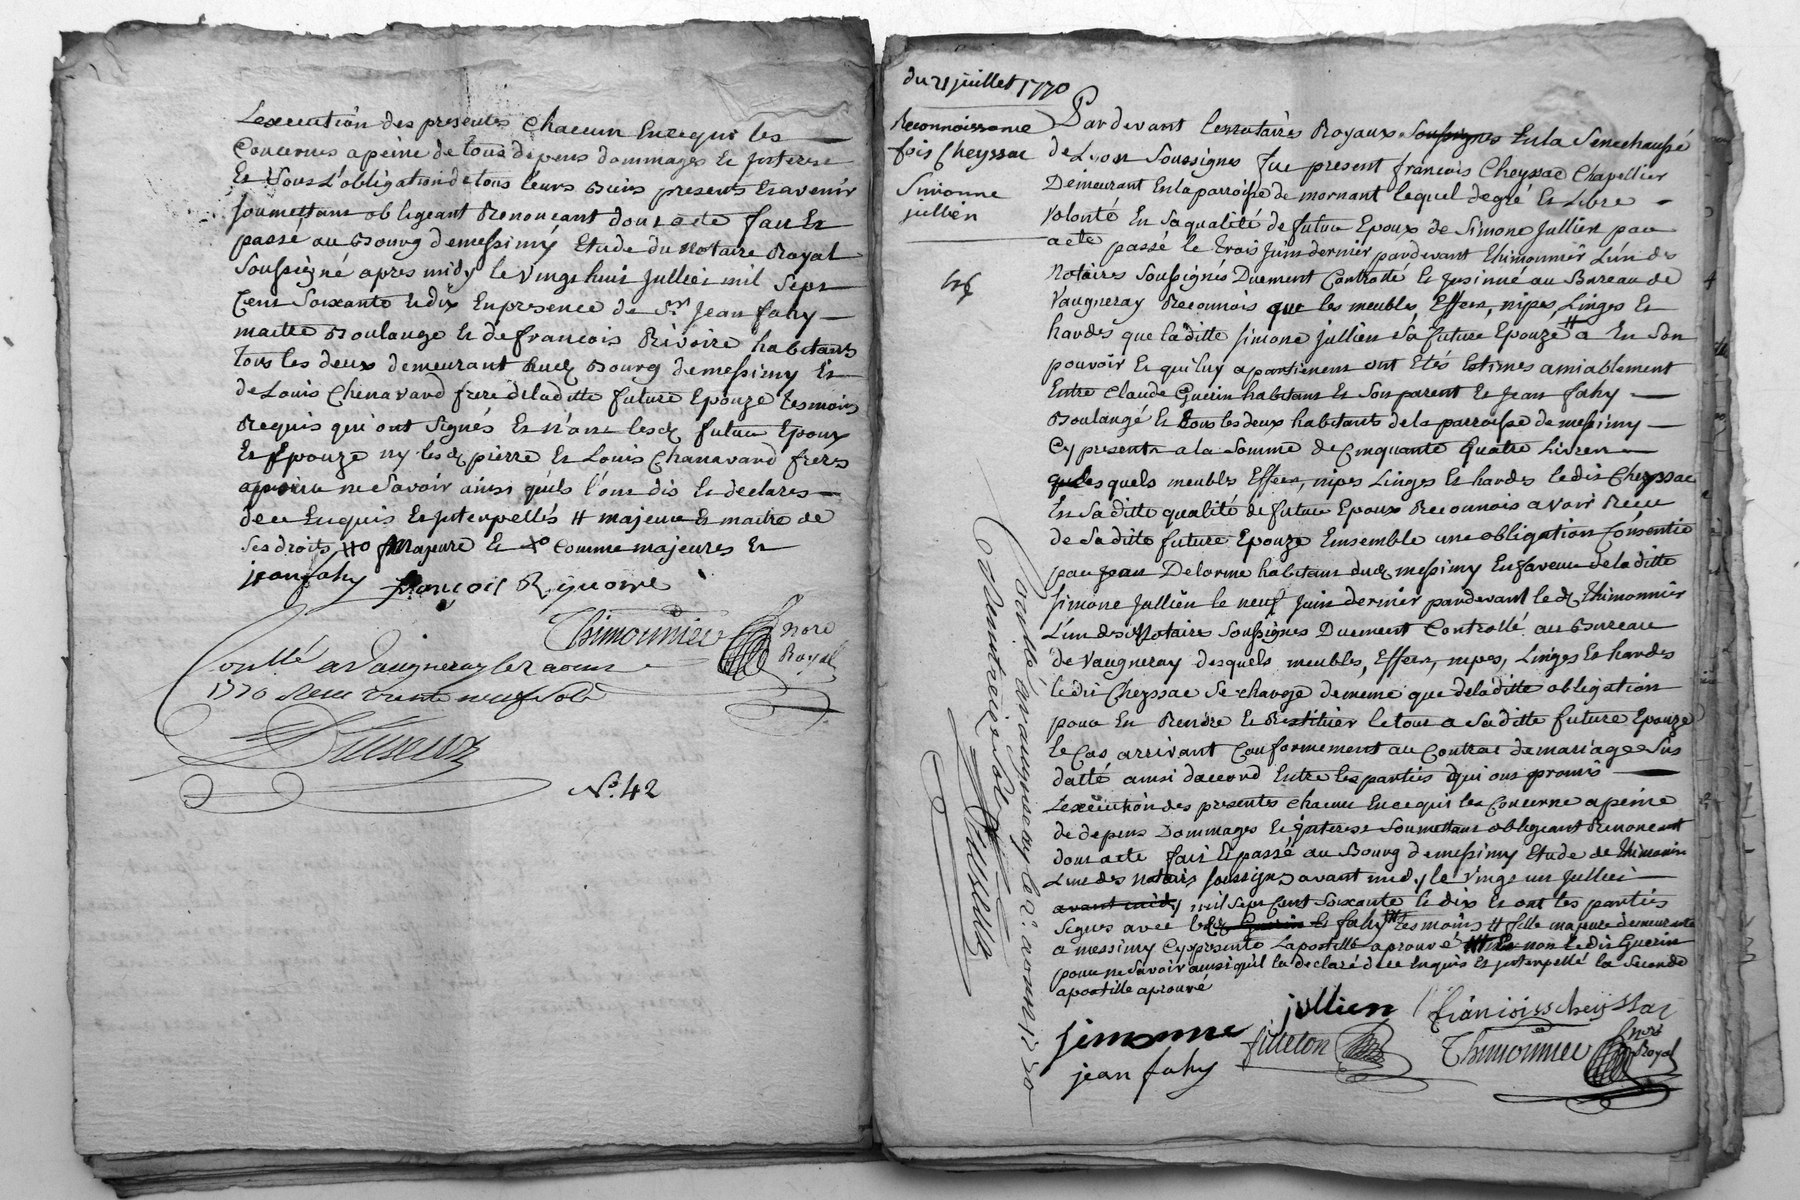 Lexecution des presentes Chacun Encequi les
Concernes apeine de tous depens dommages Et Interest
Et Sous L'obligation de tous leurs Biens presents Et avenir
Soumettant obligeant Renonceant dont acte fait Et
passé au Bourg de messimy Etude du Notaire Royal
Soussigné apres midy le vingt huit Juillet mil Sept
Cent Soixante Et dix En presence de Sr. Jean fahy
maitre Boulange Et de francois Rivoire habitants
tous les deux demeurant Aud Bourg de messimy Et
de Louis Chenavard frere de laditte future Epouze temoins
Requis qui ont Signés Et non lesd futur Epoux
Et Epouze ny lesd pierre Et Louis Chanavard freres
pour ne Savoir ainsi quils l'ont dit Et declares
de ce Enquis Et Interpellés # majeur Et maitre de
Ses droits, majeure Et comme majeures Et
jean fahy francois Rivoire
Thimounier Nore
Royal
Conllé a Vaugneray le 2 aoust
1770 Recu trente neuf Sols
No. 42
du 21 juillet 1770
Reconnoissance
fois Cheyssac
Simonne
jullien
Pardevant les notaires Royaux Soussignes En la Senechaussé
de Lyon Soussignes fut present francois Cheyssac Chapellier
Demeurant En la parroisse de mornant lequel de gré Et Libre
volonté En Sa qualité de futur Epoux de Simone Jullien par
acte passé le trois Juin dernier pardevant Thimonnier L'un des
Notaires Soussignes Duement Controllé Et Insinué au Bureau de
Vaugneray Reconnoit que les meubles, Effets, nipes, Linges Et
hardes que laditte Simone Jullien Sa future Epouze # a En Son
pouvoir Et qui luy apartienent ont Etés Estimes amiablement
Entre Claude Guerin habitant Et Son parent Et Jean fahy
Boulangé Et tous les deux habitants de la parroisse de messimy
Cy presents a la Somme de Cinquante quatre Livres
lesquels meubles Effets, nipes Linges Et hardes ledit Cheyssac
En Saditte qualité de futur Epoux Reconnois avoir Recu
de Saditte future Epouze Ensemble une obligation Consentie
par Jean Delorme habitant dud messimy En faveur de laditte
Simone Jullien le neuf Juin dernier pardevant led Thimonnier
L'un des Notaires Soussignes Duement Controllé au Bureau
de Vaugneray desquels meubles, Effets, nipes, Linges Et hardes
ledit Cheyssac Se charge de meme que de laditte obligation
pour En Rendre Et Restituer le tout a Saditte future Epouze
le Cas arrivant Conformement au Contrat de mariage Sus
datté ainsi daccord Entre les parties qui ont promis
Lexecution des presentes chacune En ce qui les Concerne a peine
de depens Dommages Et Interest Soumettant obligeant Renonceant
dont acte fait Et passé au Bourg de messimy Etude de Thimonnier
L'un des notaires Soussignés avant midy le vingt un Juillet
avant midy mil Sept Cent Soixante Et dix Et ont les parties
Signes avec led Guerin Et fahy temoins # fille majeure demeurante
a messimy Cy presente Lapostille aprouvé Et non ledit Guerin
pour ne Savoir ainsi qu'il la declaré de ce Enquis Et Interpellé la Seconde
apostille aprouvé
jullien francois cheyssac
simonne filleton Thimounier Nore
Royal
jean fahy
Conllé a vaugneray le 2 aoust 1770